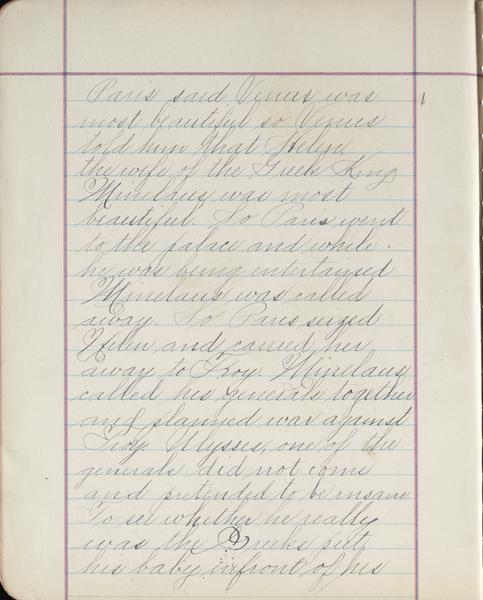 Paris said Venus was
most beautiful so Venus
told him that Helen
the wife of the Greek King
Minelaus was most
beautiful. So Paris went
to the palace and while
he was being entertained
Minelaus was called
away. So Paris seized
Helen and carried her
away to Troy. Minelaus
called his generals together
and planned war against
Troy. Ulysses, one of the
generals did not come
and pretended to be insane.
To see whether he really
was the Greeks put
his baby infront of his